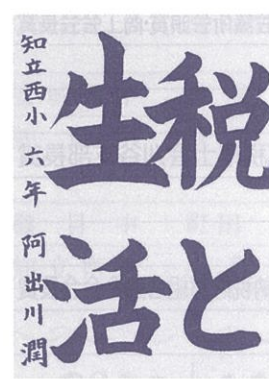 税と
生活
知立西小 六年 阿出川 潤